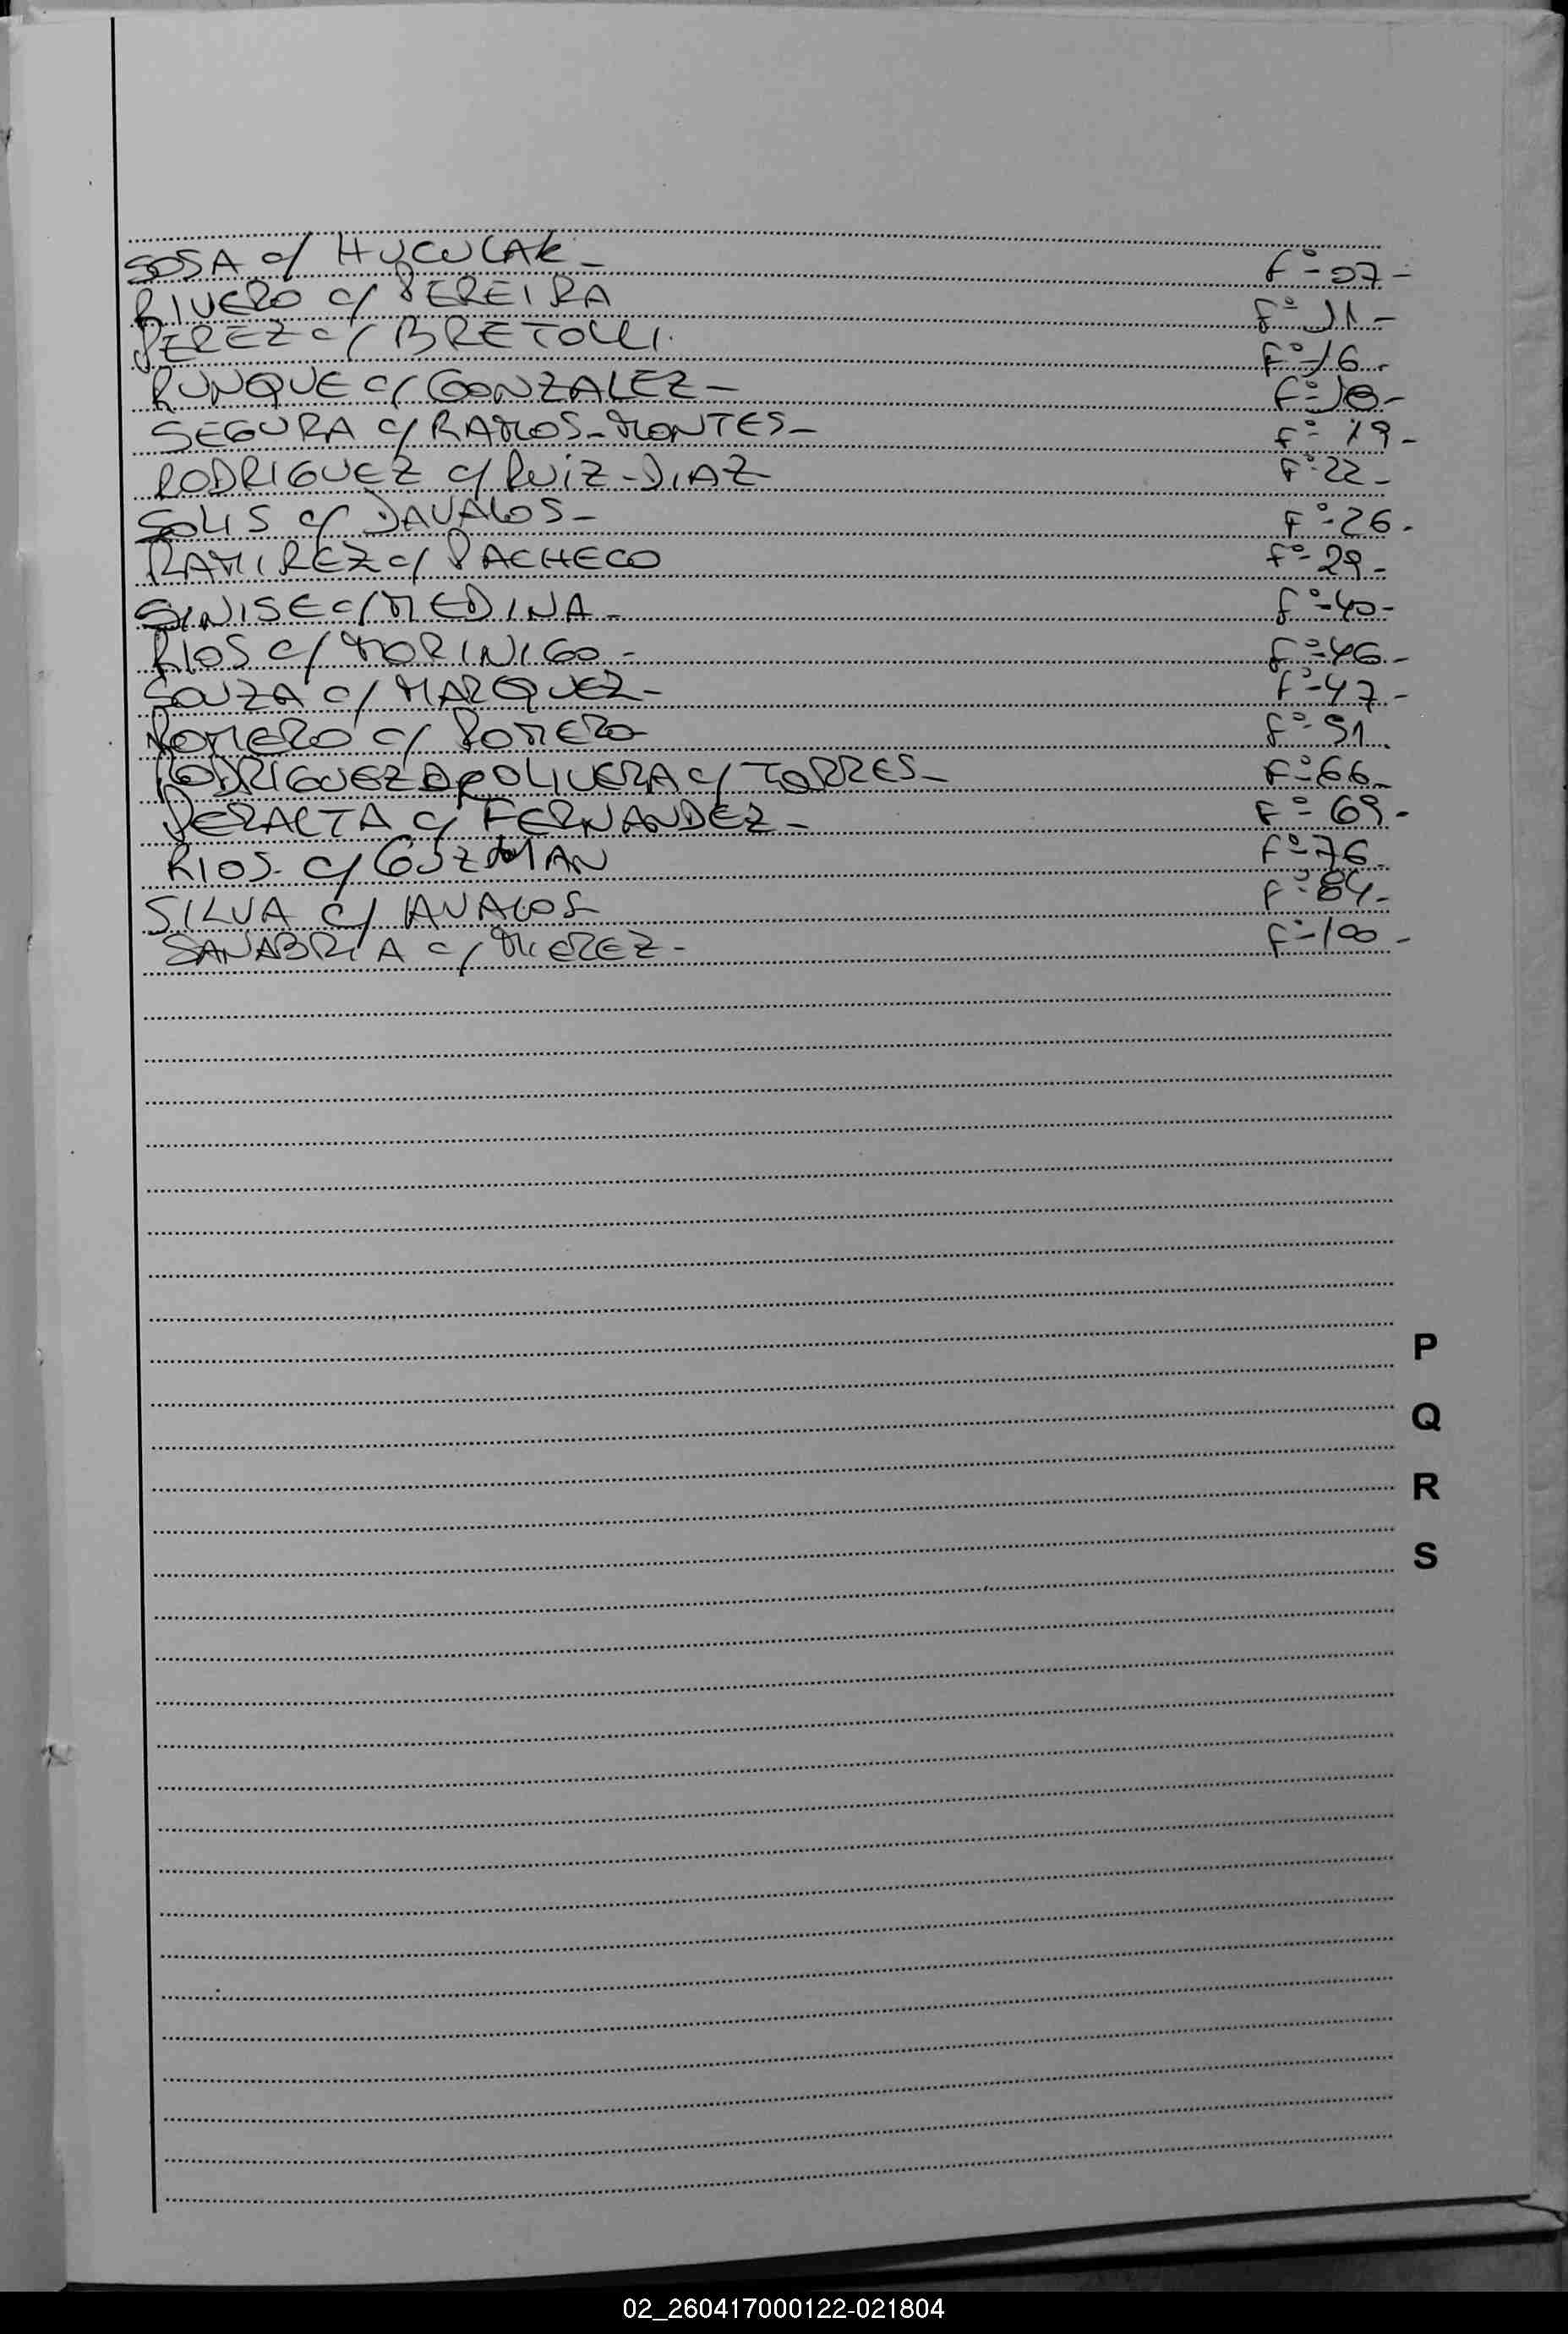 SOSA c/ HUCULAK - Fº-07-
RIVERO c/ PEREIRA Fº-11-
PEREZ c/ BRETOLLI. Fº-16.-
RUNQUE c/ GONZALEZ- Fº-18-
SEGURA c/ RAMOS-MONTES- Fº-19-
RODRIGUEZ c/ RUIZ-DIAZ Fº-22-
SOLIS c/ DAVALOS- Fº-26.
RAMIREZ c/ PACHECO Fº-29-
SINISE c/ MEDINA- Fº-40-
RIOS c/ MORINIGO- Fº-46-
SOUZA c/ MARQUEZ- Fº-47-
ROMERO c/ ROMERO- Fº-51.
RODRIGUEZ De OLIVERA c/ TORRES- Fº-66-
PERALTA c/ FERNANDEZ- Fº-69-
RIOS- c/ GUZMAN Fº-76-
SILVA c/ AVALOS Fº-84-
SANABRIA c/ MEREZ- Fº-100-
P
Q
R
S
02_260417000122-021804